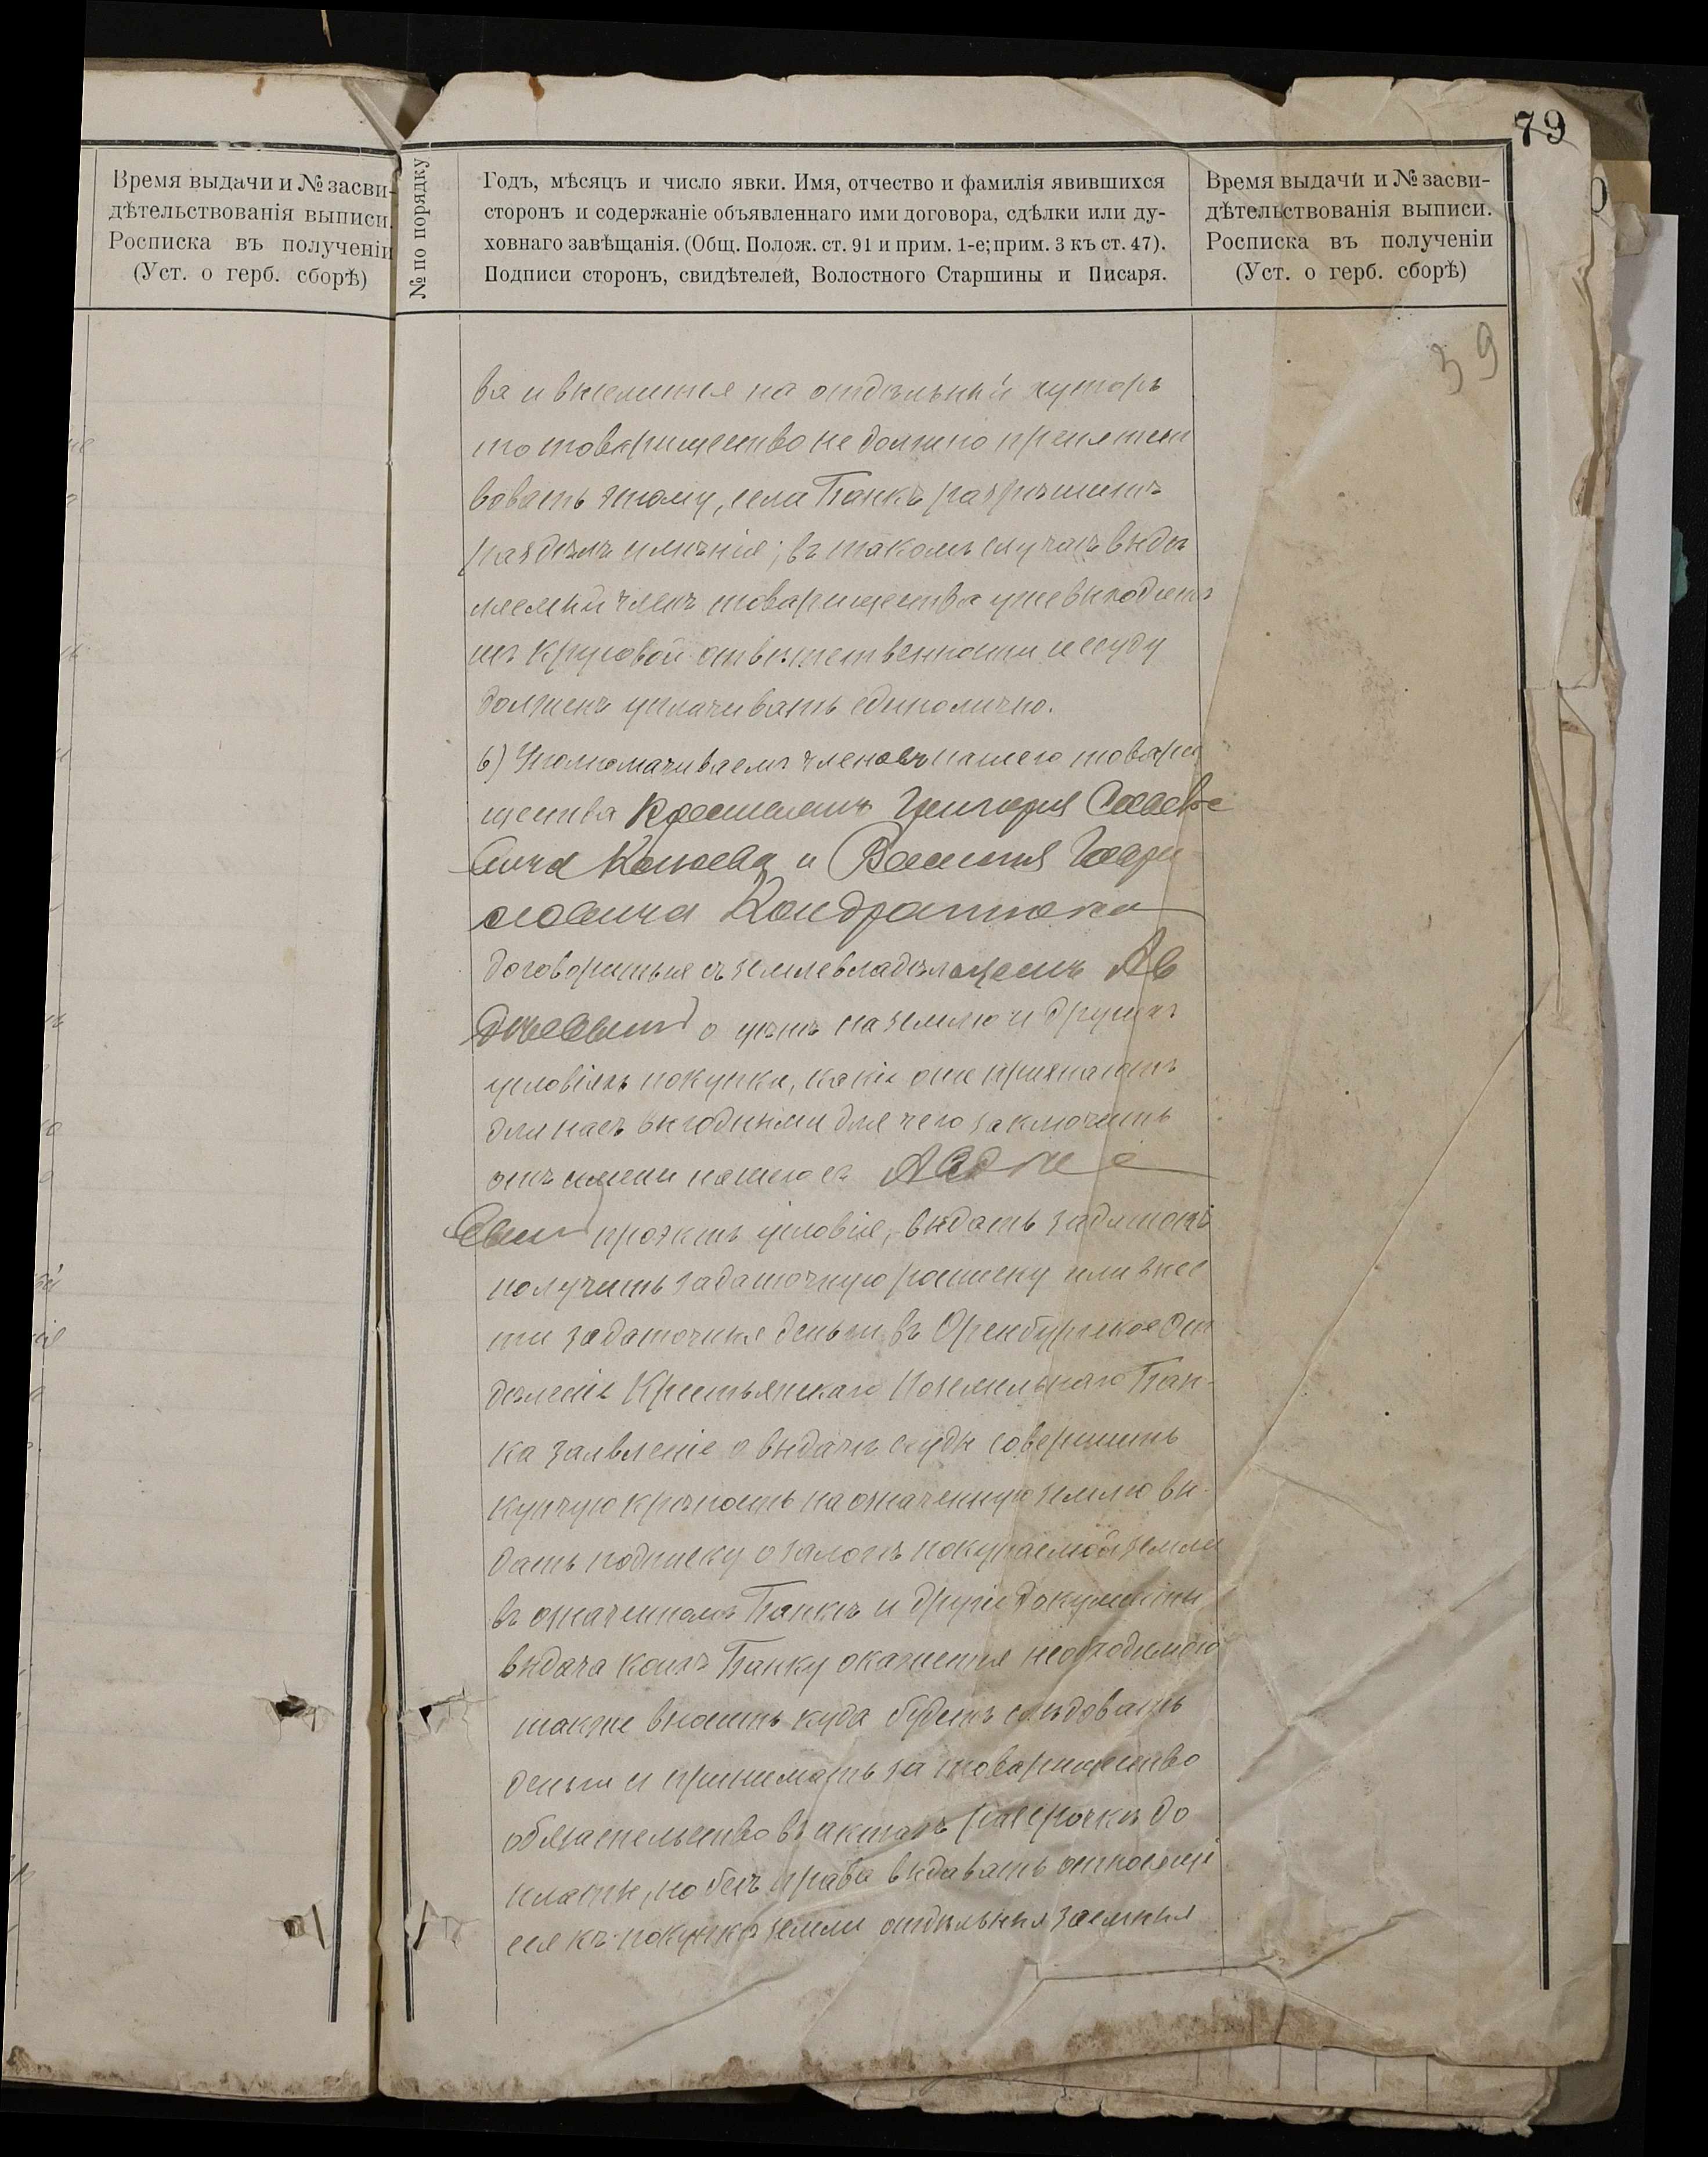 79
Время выдачи и № засви-
дѣтельствованія выписи.
Росписка въ полученіи
(Уст. о герб. сборѣ)
№ по порядку
Годъ, мѣсяцъ и число явки. Имя, отчество и фамилія явившихся
сторонъ и содержаніе объявленнаго ими договора, сдѣлки или ду-
ховнаго завѣщанія. (Общ. Полож. ст. 91 и прим. 1-е; прим. 3 къ ст. 47).
Подписи сторонъ, свидѣтелей, Волостного Старшины и Писаря.
Время выдачи и № засви-
дѣтельствованія выписи.
Росписка въ полученіи
(Уст. о герб. сборѣ)
39
ва и вселится на отдѣльный хуторъ
то товарищество не должно препятст
вовать этому, если Банкъ разрѣшитъ
раздѣлъ имѣнія; въ такомъ случаѣ выдѣ
ляемый членъ товарищества уже выходитъ
изъ круговой отвѣтственности и ссуду
долженъ уплачивать единолично.
6) Уполномачиваемъ членовъ нашего товари
щества крестьянъ Григорія
и Василія Гаври
ловича Кондратюка
договориться съ землевладѣльцемъ Ав
дѣевымъ о цѣнѣ на землю и другихъ
условіяхъ покупки, какіе они признаютъ
для насъ выгодными для чего заключить
отъ имени нашего съ Авдѣе
евым проэктъ условія, выдать задатокъ
получить задаточную росписку или внес
ти задаточныя деньги въ Оренбургское От
дѣленіе Крестьянскаго Поземельнаго Бан-
ка заявленіе о выдачѣ ссуды совершить
купчую крѣпость на означенную землю вы-
дать подписку о залогѣ покупаемой земли
въ означенномъ Банкѣ и другіе документы
выдача коихъ Банку окажется необходимой
также вносить куда будетъ слѣдовать
деньги и принимать за товарищество
обязательство въ актахъ разсрочкѣ до
платы, но безъ права выдавать относящі
еся къ покупкѣ земли отдѣльныя заемныя